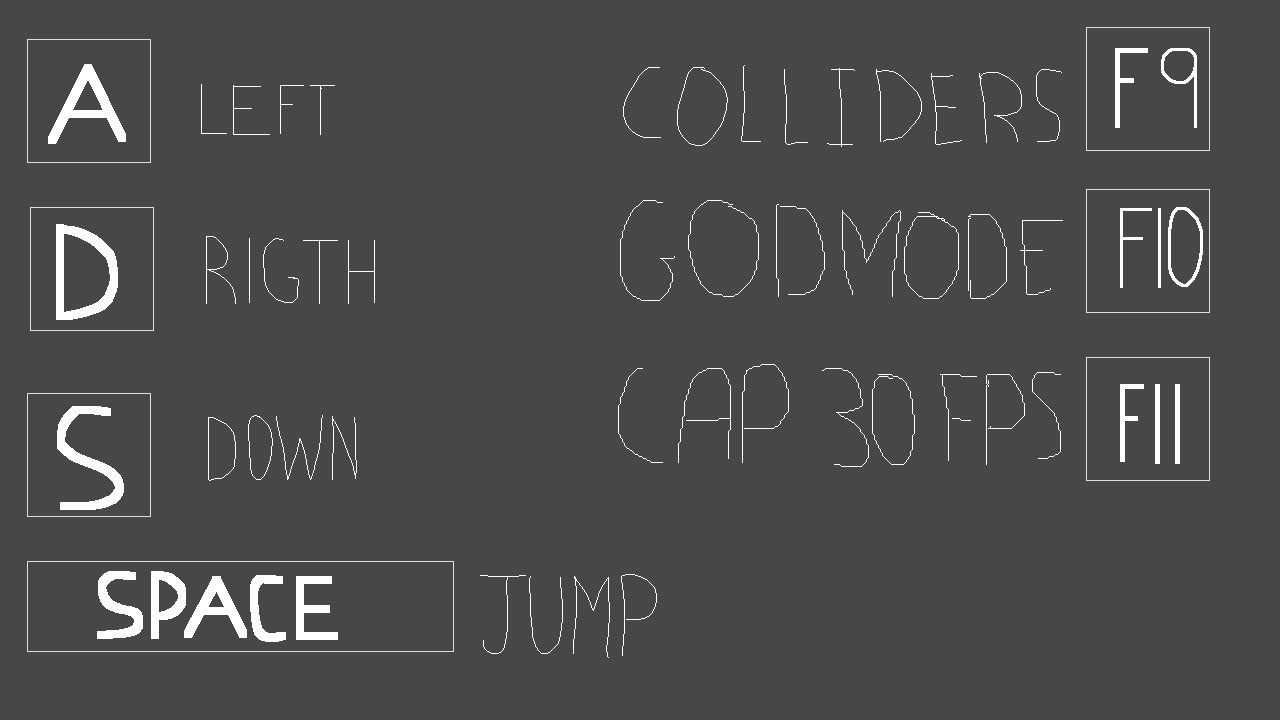 A LEFT
D RIGTH
S DOWN
SPACE JUMP
COLLIDERS F9
GODMODE F10
CAP 30 FPS F11